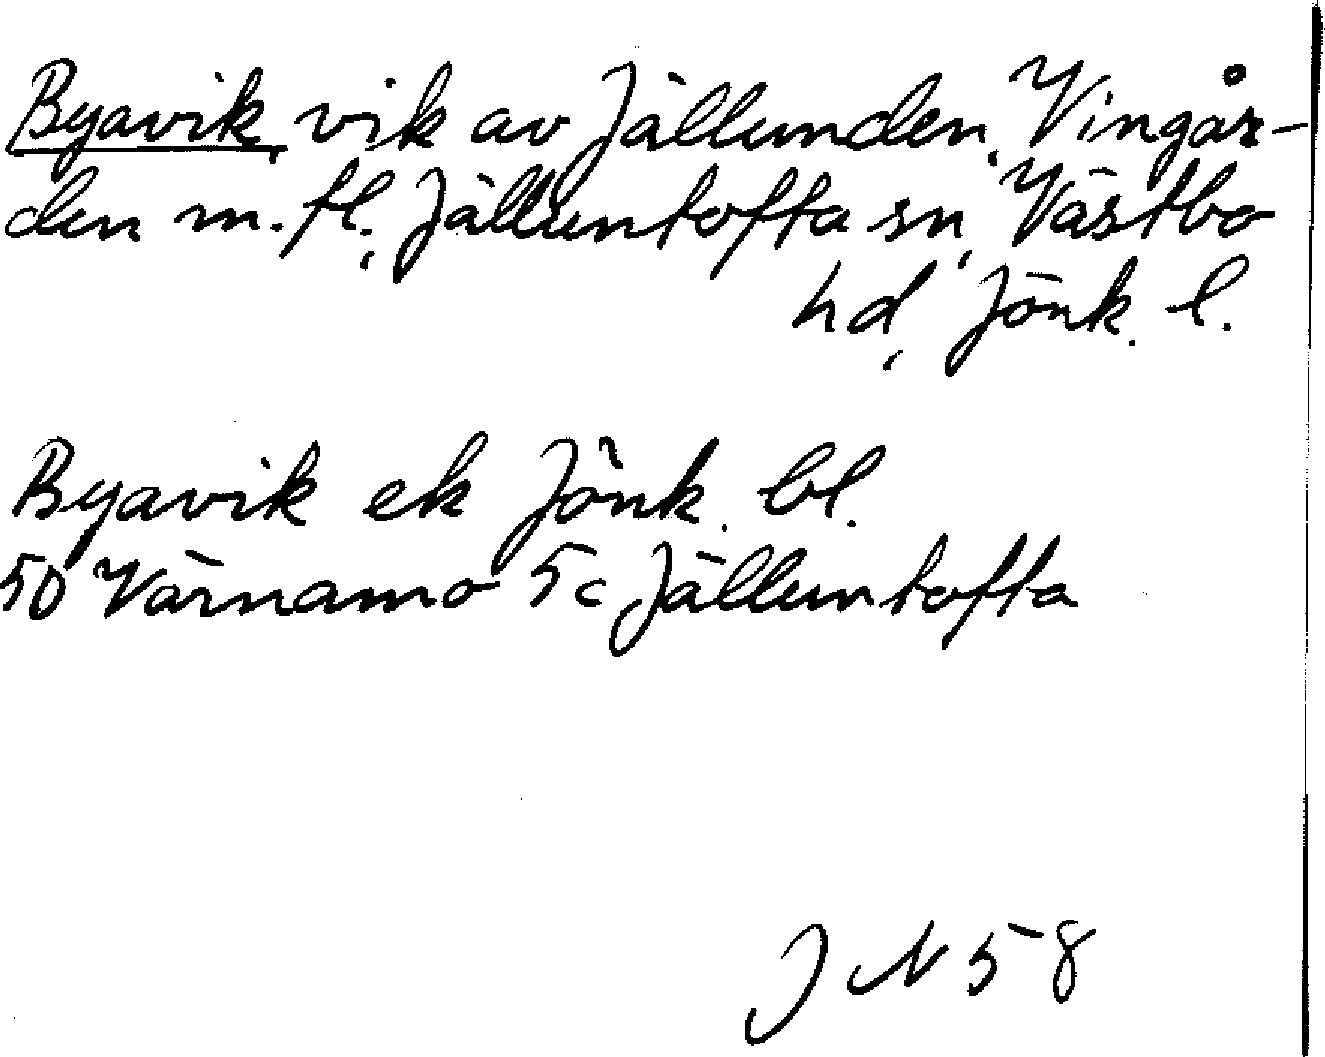 Byavik, vik av Jällunden, Vingår-
den m.fl., Jälluntofta sn, Västbo
hd, Jönk. l.
Byavik ek Jönk. bl.
50 Värnamo 5c Jälluntofta
J N 58